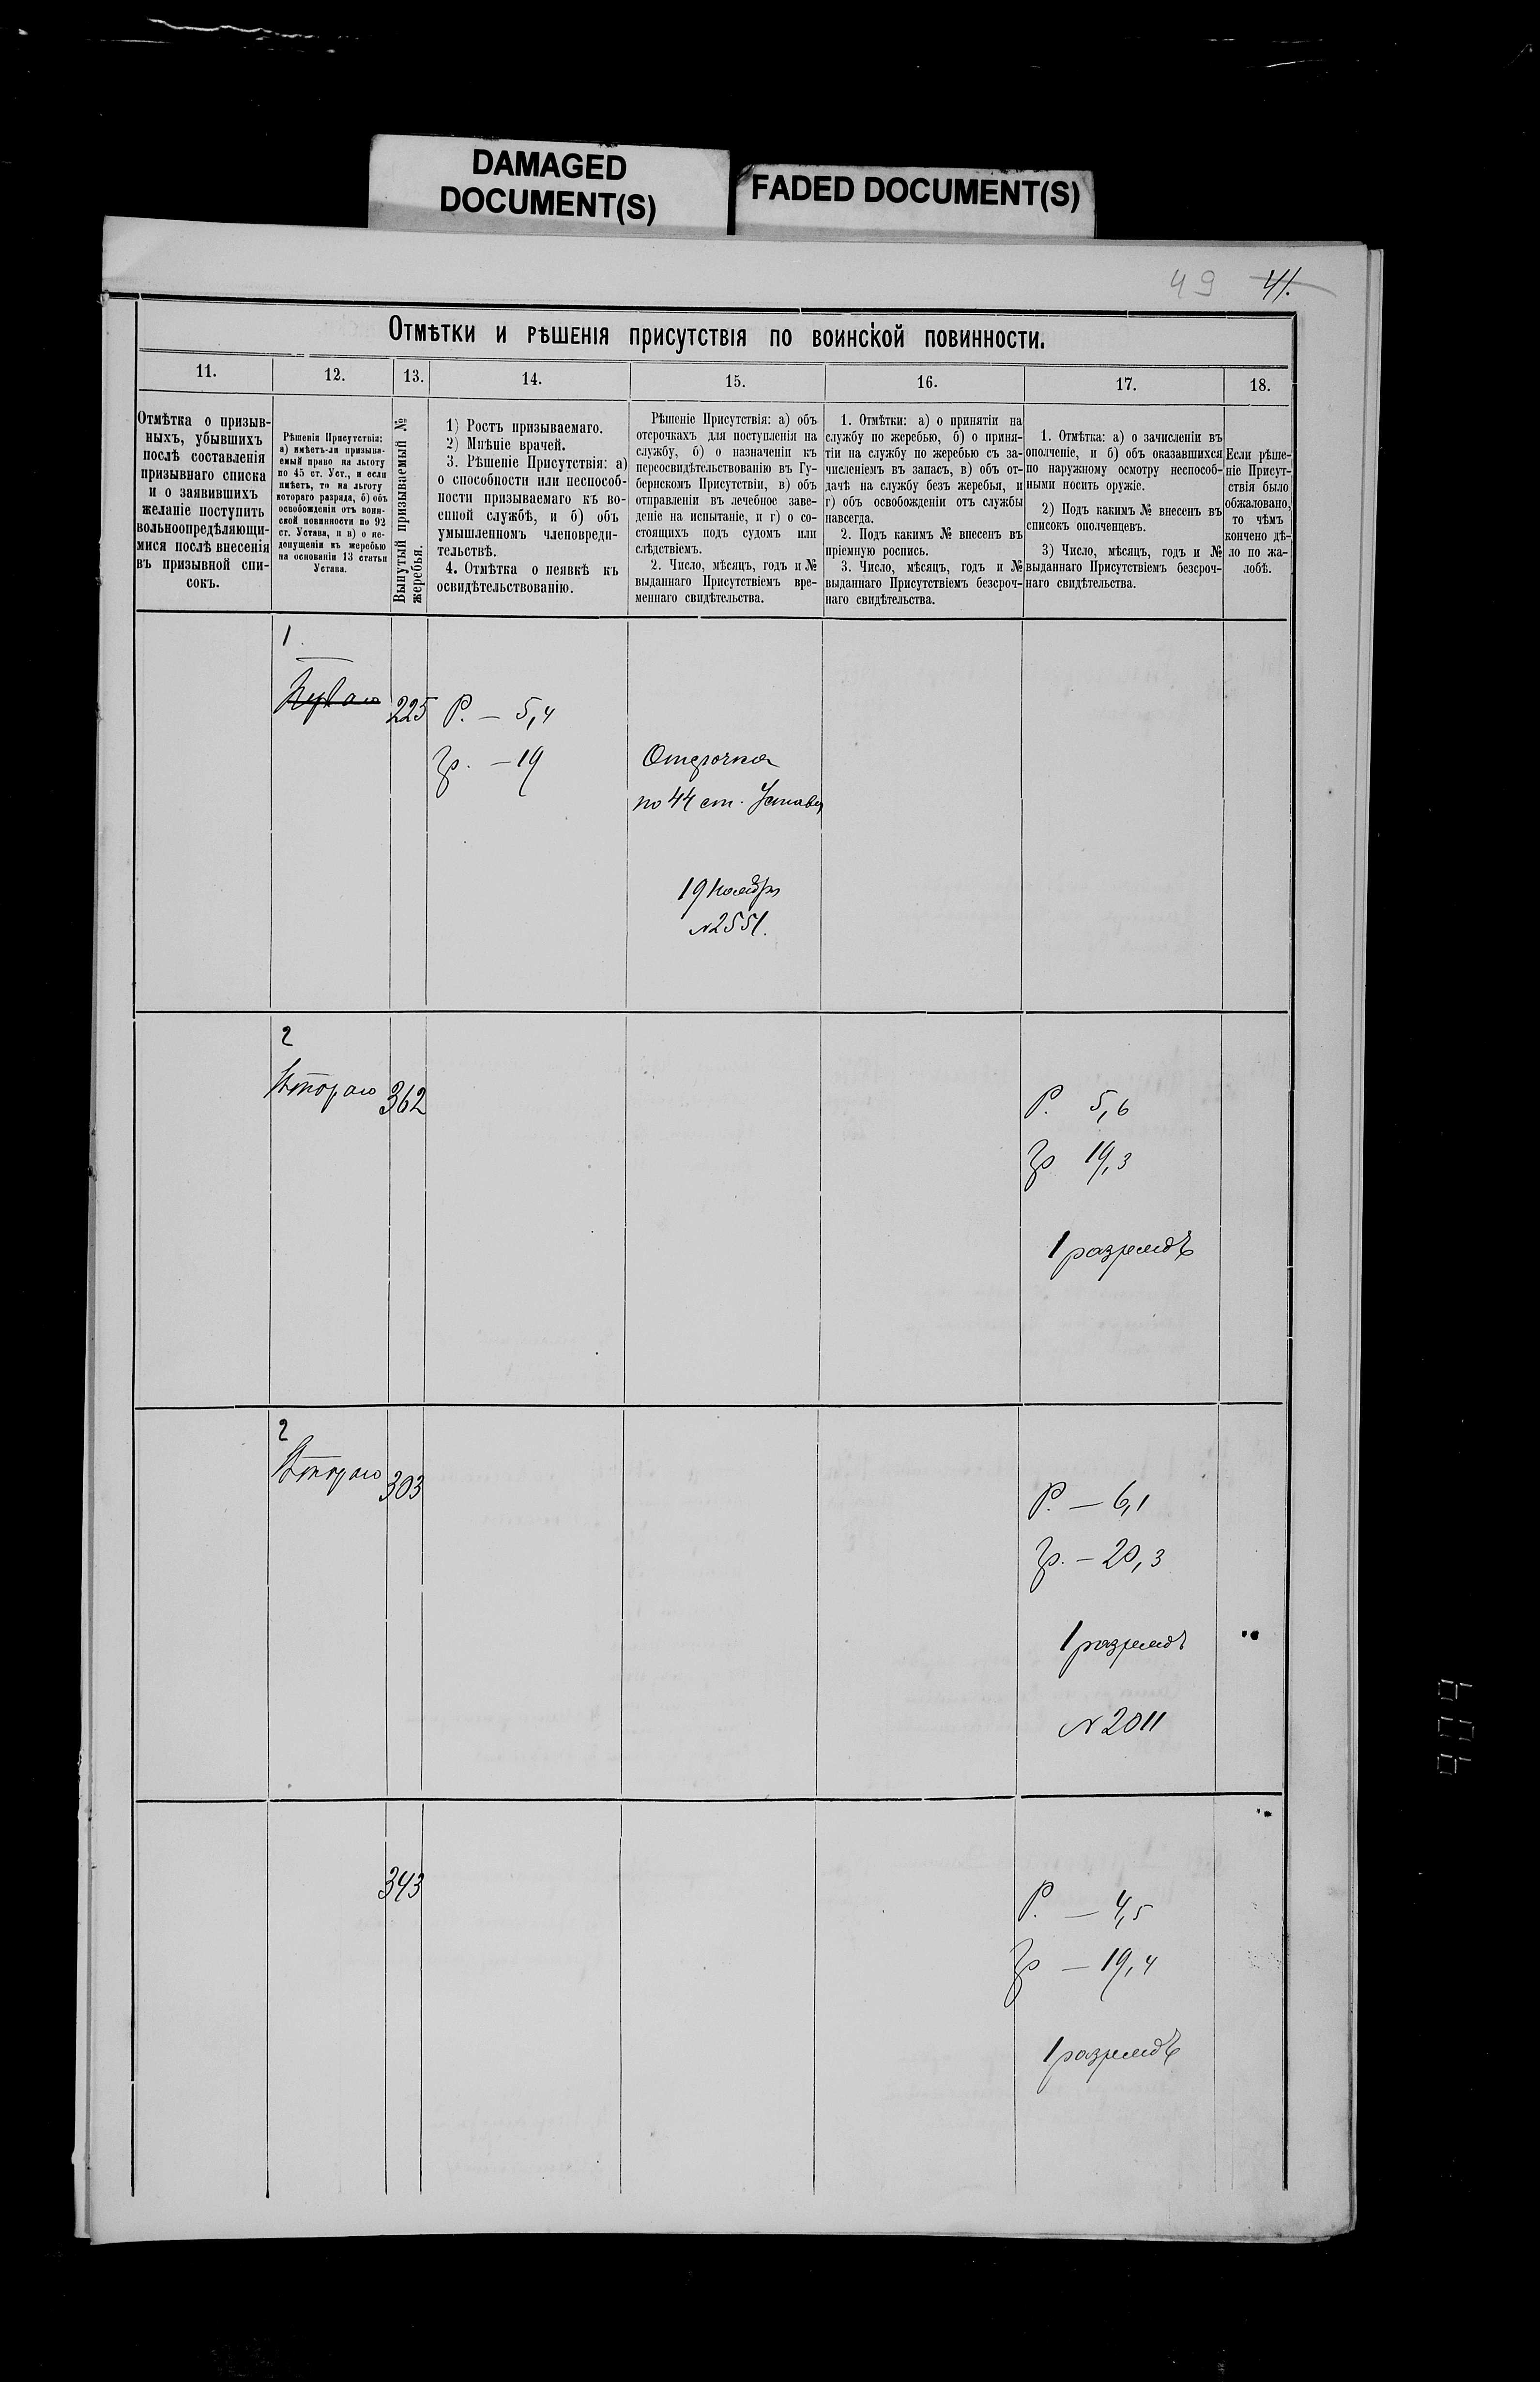 DAMAGED
DOCUMENT(S)
FADED DOCUMENT(S)
49 41.
Отмѣтки и рѣшенія присутствія по воинской повинности.
11. 12. 13. 14. 15. 16. 17. 18.
Отмѣтка о призыв-
ныхъ, убывшихъ
послѣ составленія
призывнаго списка
и о заявившихъ
желаніе поступить
вольноопредѣляющи-
мися послѣ внесенія
въ призывной спи-
сокъ.
Рѣшенія Присутствія:
а) имѣетъ-ли призыва-
емый право на льготу
по 45 ст. Уст., и если
имѣетъ, то на льготу
котораго разряда, б) объ
освобожденіи отъ воин-
ской повинности по 92
ст. Устава, и в) о не-
допущеніи къ жеребью
на основаніи 13 статьи
Устава.
Вынутый призываемый №
жеребья.
1) Ростъ призываемаго.
2) Мнѣніе врачей.
3. Рѣшеніе Присутствія: а)
о способности или неспособ-
ности призываемаго къ во-
енной службѣ, и б) объ
умышленномъ членовреди-
тельствѣ.
4. Отмѣтка о неявкѣ къ
освидѣтельствованію.
Рѣшеніе Присутствія: а) объ
отсрочкахъ для поступленія на
службу, б) о назначеніи къ
переосвидѣтельствованію въ Гу-
бернскомъ Присутствіи, в) объ
отправленіи въ лечебное заве-
деніе на испытаніе, и г) о со-
стоящихъ подъ судомъ или
слѣдствіемъ.
2. Число, мѣсяцъ, годъ и №
выданнаго Присутствіемъ вре-
меннаго свидѣтельства.
1. Отмѣтки: а) о принятіи на
службу по жеребью, б) о приня-
тіи на службу по жеребью съ за-
численіемъ въ запасъ, в) объ от-
дачѣ на службу безъ жеребья, и
г) объ освобожденіи отъ службы
навсегда.
2. Подъ какимъ № внесенъ въ
пріемную роспись.
3. Число, мѣсяцъ, годъ и №
выданнаго Присутствіемъ безсроч-
наго свидѣтельства.
1. Отмѣтка: а) о зачисленіи въ
ополченіе, и б) объ оказавшихся
по наружному осмотру неспособ-
ными носить оружіе.
2) Подъ какимъ № внесенъ въ
списокъ ополченцевъ.
3) Число, мѣсяцъ, годъ и №
выданнаго Присутствіемъ безсроч-
наго свидѣтельства.
Если рѣше-
ніе Присут-
ствія было
обжаловано,
то чѣмъ
кончено дѣ-
ло по жа-
лобѣ.
1
Перваго 225 Р. — 5,4
Гр. — 19
Отсрочка
по 44 ст. Устава
19 Ноября
№ 2551.
2
Втораго 362
Р. 5,6
Гр 19,3
1 разрядъ
2
Втораго 303
Р. — 6,1
Гр. — 20,3
1 разрядъ
№ 2011
343
Р. — 4,5
Гр — 19,4
1 разрядъ